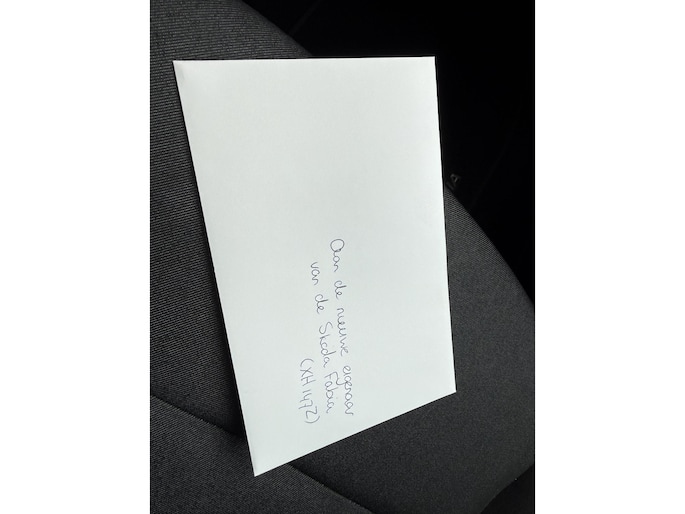 Aan de nieuwe eigenaar
van de Skoda Fabia,
(XH147Z)